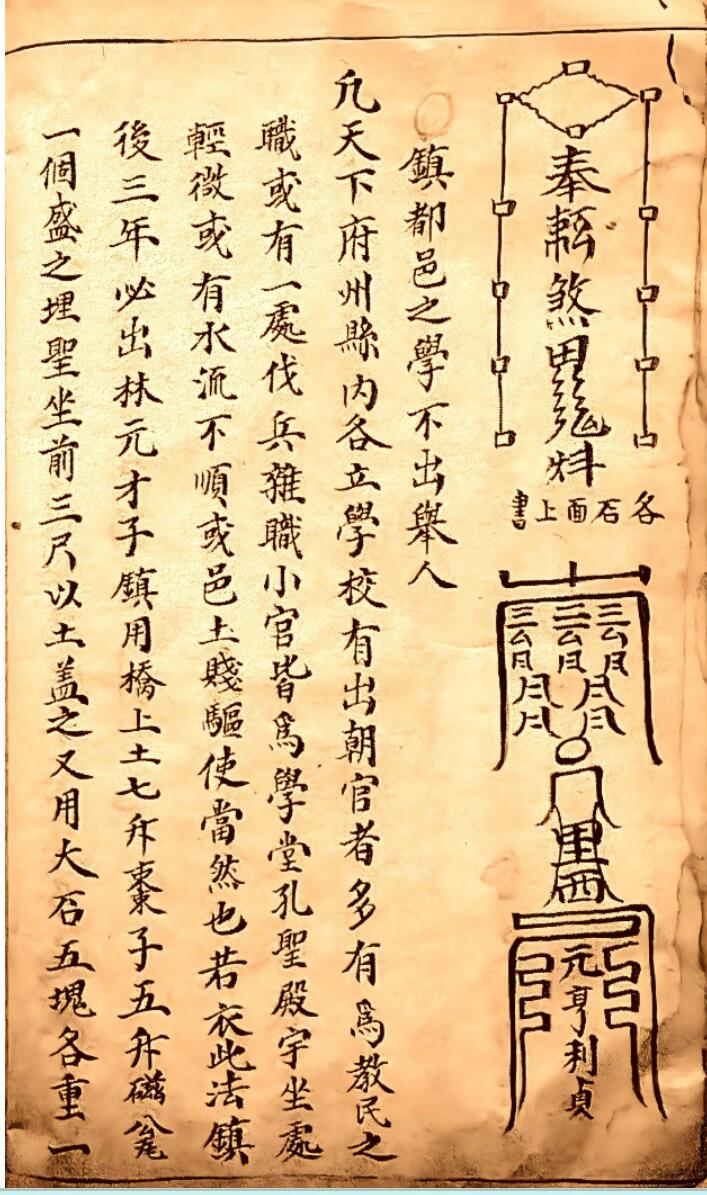 奉煞
各石面上書
元亨利貞
鎮都邑之學不出舉人
凡天下府州縣內各立學校有出朝官者多有爲教民之
職或有一處伐兵雜職小官皆爲學堂孔聖殿宇坐處
輕微或有水流不順或邑土賤驅使當然也若衣此法鎮
後三年必出元才子鎮用橋上土七斤棗子五斤磁瓮
一個盛之埋聖坐前三尺以土盖之又用大石五塊各重一